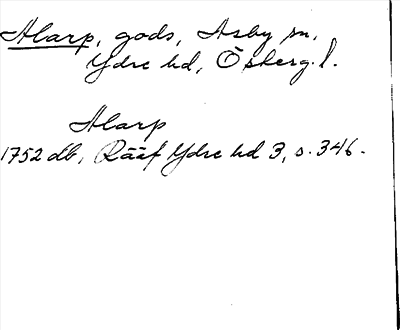 Alarp, gods, Asby sn,
Ydre hd, Östterg. l.
Alarp
1752 db, Rääf Ydre hd 3, s. 346.